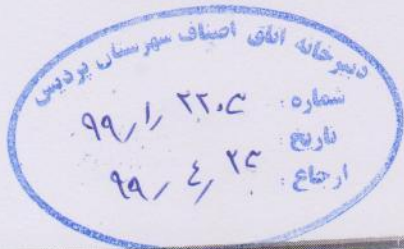 دبیرخانه اتاق اصناف شهرستان پردیس
شماره : ۹۹/۱/۲۲۰۳
تاریخ : ۹۹/۴/۲۳
ارجاع :